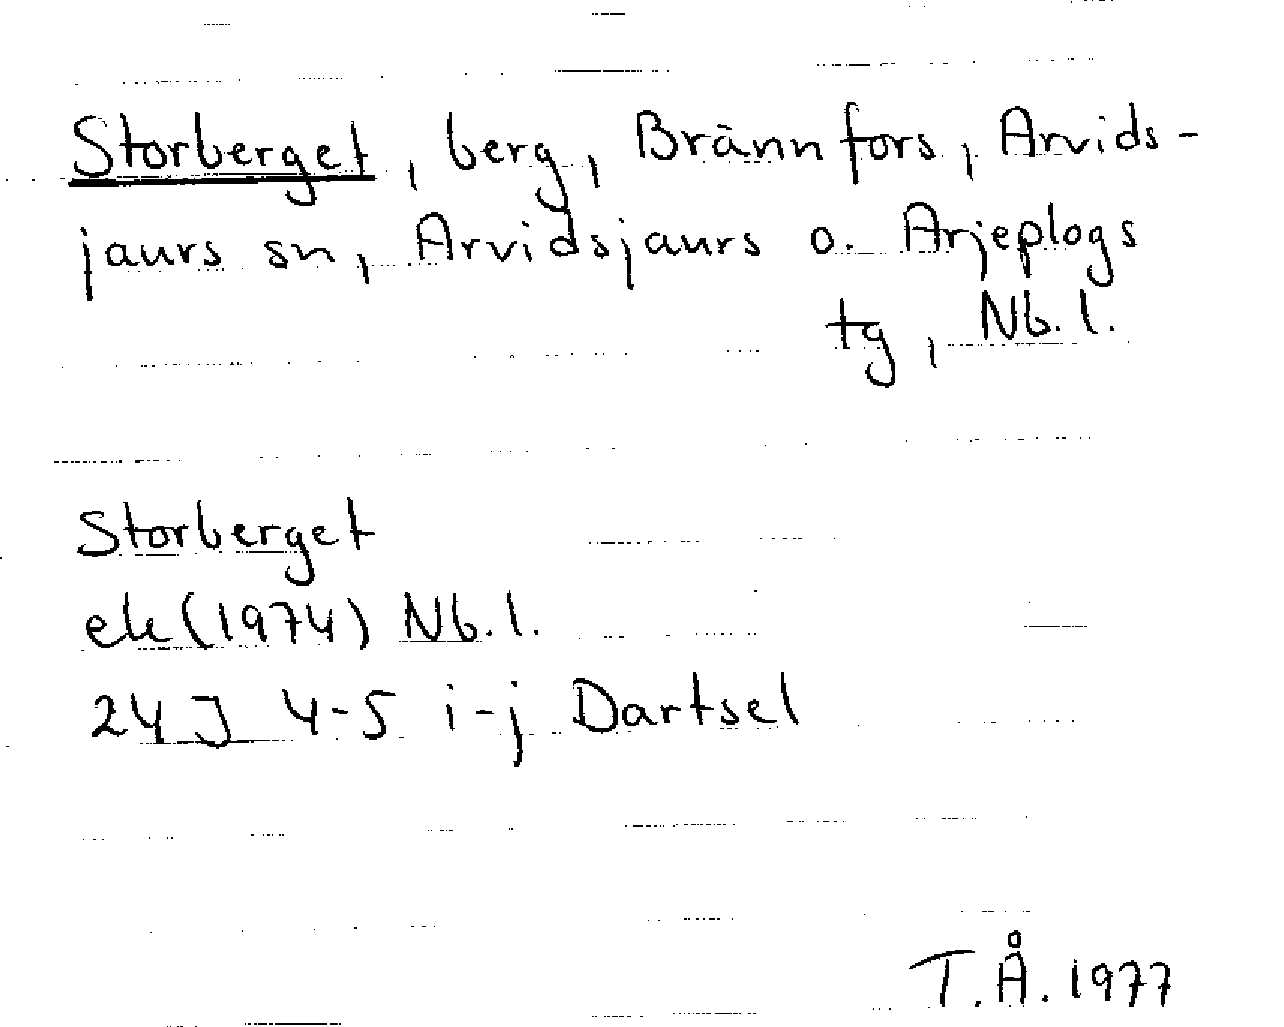 Storberget, berg, Brännfors, Arvids-
jaurs sn, Arvidsjaurs o. Arjeplogs
tg, Nb. l.
Storberget
ek (1974) Nb. l.
24 J 4-5 i-j Dartsel
T.Å. 1977